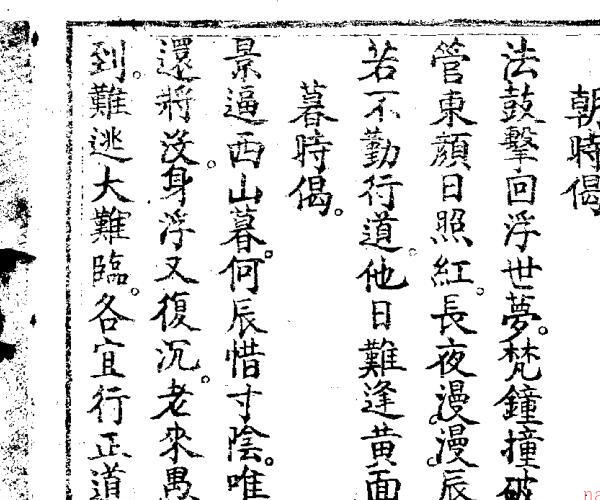 朝時偈
法鼓擊回浮世夢。梵鐘撞破
管東顏日照紅。長夜漫。漫。辰
若不勤行道。他日難逢黃面
暮時偈。
景逼西山暮。何辰惜寸陰。唯
還將沒。身浮又復沉。老來愚
到。難逃大難臨。各宜行正道
na